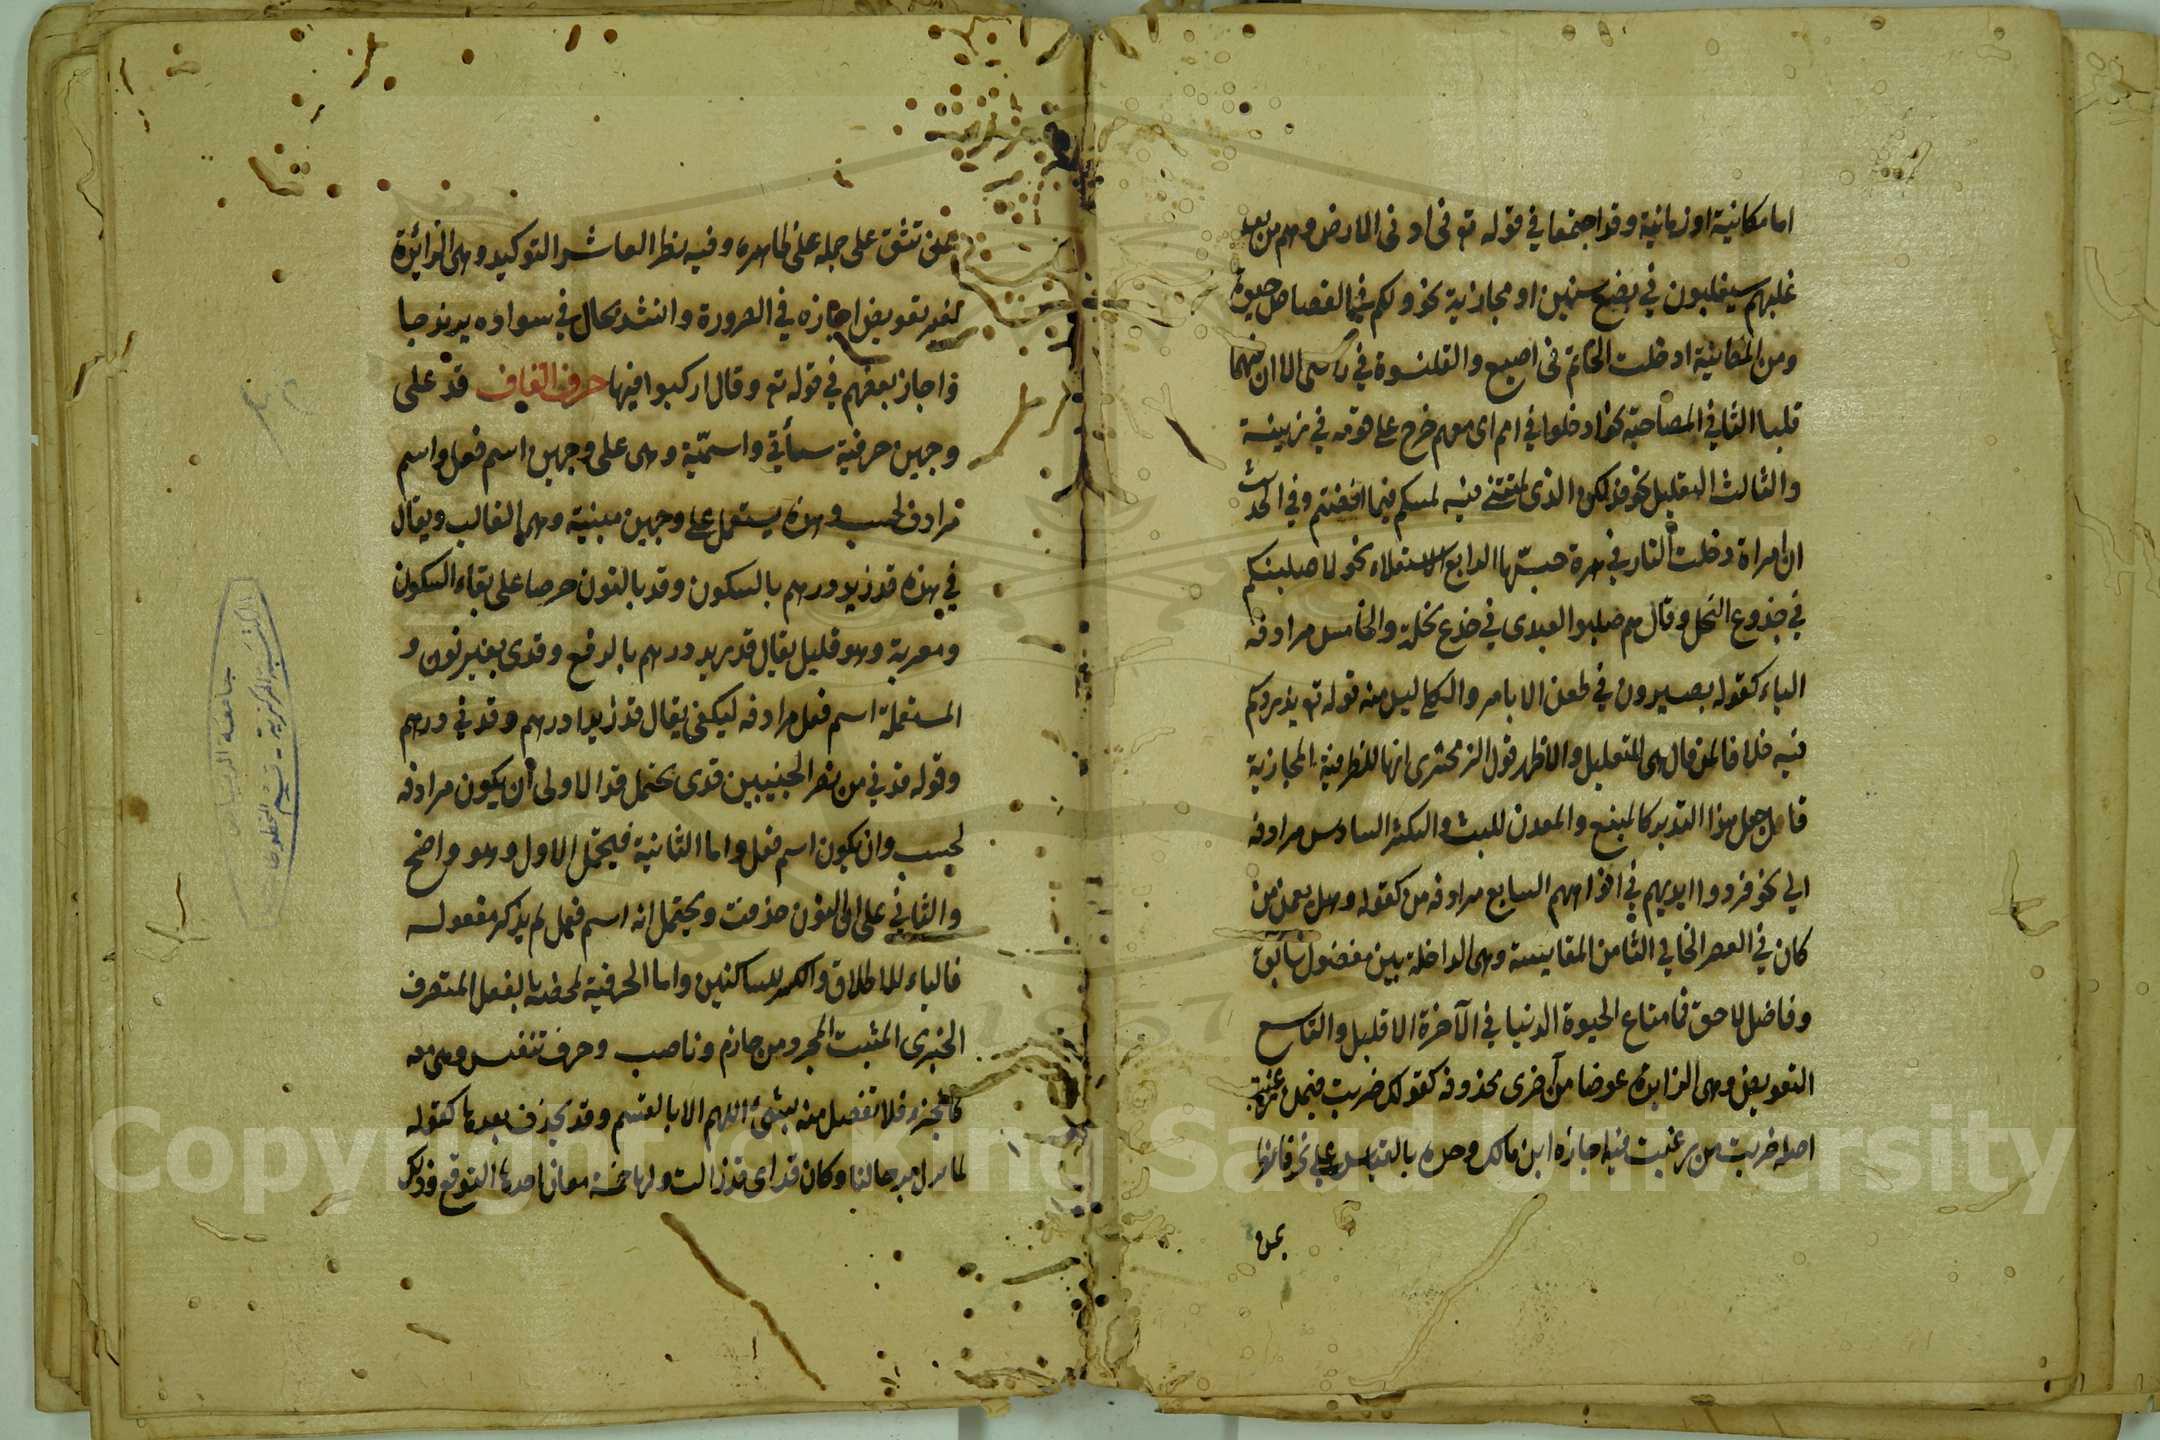 اما مكانية او زمانية وقد اجتمعا في قوله تع في ادنى الارض وهم من بعد
غلبهم سيغلبون في بضع سنين او مجازية نحو ولكم في القصاص حيوة
ومن المكانية ادخلت الخاتم في اصبع والقلنسوة في راسى الا ان فيهما
قلبا الثاني المصاحبة نحو ادخلوا في امم اى معهم فخرج على قومه في زينته
والثالث التعليل نحو فذلكن الذى لمتننى فيه لمسكم فيما افضتم وفي الحديث
ان امراة دخلت النار في هرة حبستها الرابع الاستعلاء نحو لاصلبنكم
في جذوع النخل وقال هم صلبوا العبدى في جذع نخلة والخامس مرادفه
الباء كقوله بصيرون في طعن الاباهر والكلى ليس منه قوله تع يذرؤكم
فيه خلافا لمن قال هى للتعليل والاظهر قول الزمخشرى انها للظرفية المجازية
قال جعل هذا التدبير كالمنبع والمعدن للبث والتكثر السادس مرادفه
الى نحو فردوا ايديهم في افواههم السابع مرادفه من كقوله وهل يعمن من
كان في العصر الخالى الثامن المقايسة وهى الداخلة بين مفضول سابق
وفاضل لاحق فما متاع الحيوة الدنيا في الآخرة الا قليل والتاسع
التعويض وهى الزايدة عوضا من اخرى محذوفه كقولك ضربت فيمن رغبت
اصله ضربت من رغبت فيه اجازه ابن مالك وحده بالقياس على نحو فانظر
بمن
بمن تثق على حمله على ظاهره وفيه نظر العاشر التوكيد وهى الزائدة
لغير تعويض اجازه في الضرورة وانشد يخال في سواده يرندجا
واجاز بعضهم في قوله تع وقال اركبوا فيها حرف القاف قد على
وجهين حرفية ستأتي واسمّية وهى على وجهين اسم فعل واسم
مرادف لحسب وهذه يستعمل على وجهين مبنية وهى الغالب ويقال
في هذه قد زيد درهم بالسكون وقد بالنون حرصا على بقاء السكون
ومعربة وهو قليل يقال قد زيد درهم بالرفع وقدى بغير نون و
المستعملة اسم فعل مرادفه ليكفى يقال قد زيدا درهم وقدني درهم
وقوله قدني من نصر الخبيبين قدى تحتمل قد الاولى ان يكون مرادفه
لحسب وان يكون اسم فعل واما الثانية فيحتمل الاول وهو واضح
والثاني على ان النون حذفت ويحتمل انه اسم فعل لم يذكر مفعوله
فالياء للاطلاق والكسر للساكنين واما الحرفية فمختصه بالفعل المتصرف
الخبرى المثبت المجرد من جازم وناصب وحرف تنفيس وهى معه
كالجزء فلا تفصل منه بشئ اللهم الا بالقسم وقد يحذف بعدها كقوله
لما تزل برحالنا وكان قد اى قد زالت ولها خمسة معان احدها التوقع وذلك
جامعة الرياض
المكتبة المركزية - قسم المخطوطات
Copyright © King Saud University
1957